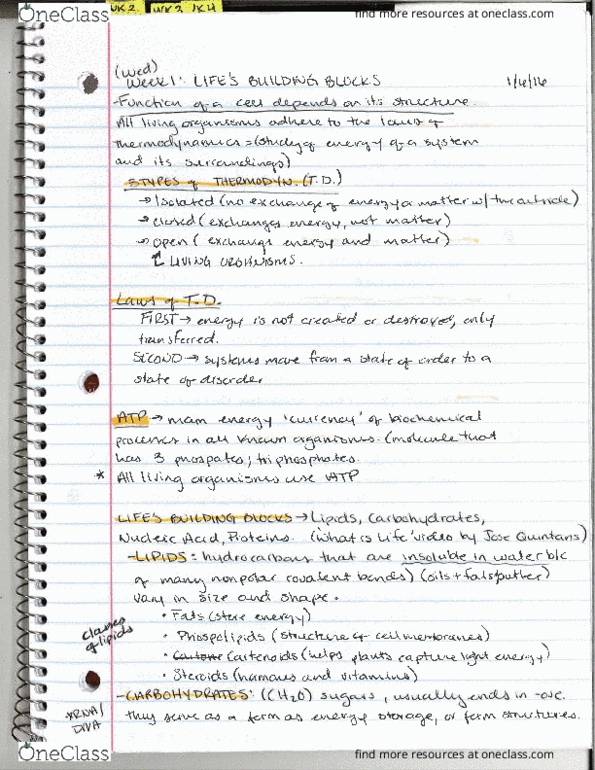 OneClass
find more resources at oneclass.com
WK2 WK3 WK4
(wed)
Week 1: LIFE'S BUILDING BLOCKS 1/6/16
-Function of a cell depends on its structure.
All living organisms adhere to the laws of
thermodynamics = (study of energy of a system
and its surroundings)
3 TYPES of THERMODYN. (T.D.)
→ Isolated (no exchange of energy or matter w/ the outside)
→ closed (exchanges energy, not matter)
→ open (exchange energy and matter)
↑ LIVING ORGNISMS.
Laws of T.D.
FIRST → energy is not created or destroyed, only
transferred.
SECOND → systems move from a state of order to a
state of disorder
ATP → main energy 'currency' of biochemical
processes in all known organisms. (molecule that
has 3 phospates; triphosphates.
* All living organisms use ATP
LIFE'S BUILDING BLOCKS → Lipids, Carbohydrates,
Nucleic Acid, Proteins. ('What is Life' video by Jose Quintans)
-LIPIDS = hydrocarbons that are insoluble in water b/c
of many nonpolar covalent bonds) (oils + fats/butter)
vary in size and shape.
• Fats (store energy)
classes of lipids
• Phospolipids (structure of cell membranes)
• Cartenoids (helps plants capture light energy)
• Steroids (hormones and vitamins)
-CARBOHYDRATES: (CH2O) sugars, usually ends in -ose.
*RNA/
DNA
they serve as a form as energy storage, or form structures.
OneClass
find more resources at oneclass.com